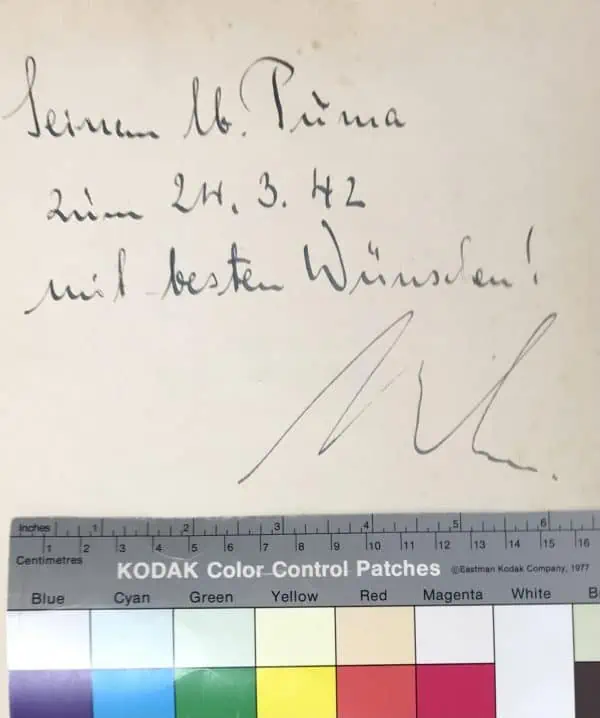 Seinem lb. Puma
zum 24. 3. 42
mit besten Wünschen!
Inches 1 2 3 4 5 6
Centimetres 1 2 3 4 5 6 7 8 9 10 11 12 13 14 15 16
KODAK Color Control Patches ©Eastman Kodak Company, 1977
Blue Cyan Green Yellow Red Magenta White